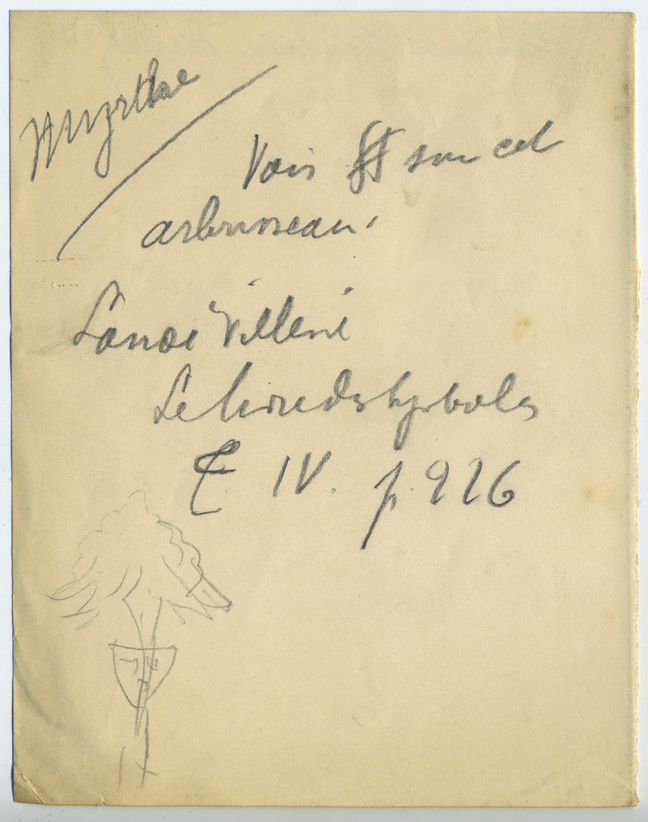 Myrthe
Voir §§ sur cet
arbrisseau.
Lanoë Villène
Le livre des symboles
T IV. p. 226